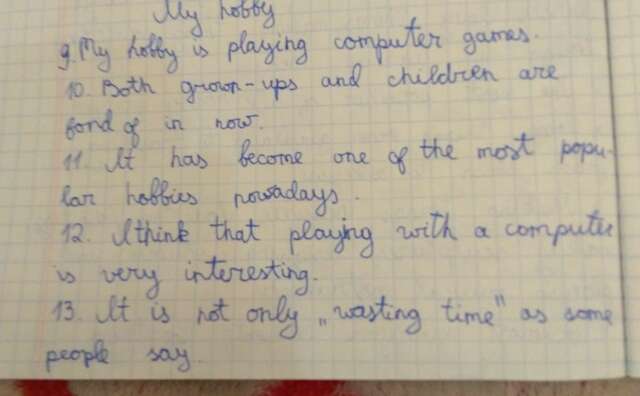 My hobby
9. My hobby is playing computer games.
10. Both grown-ups and children are
fond of in now.
11. It has become one of the most popu-
lar hobbies nowadays.
12. I think that playing with a computer
is very interesting.
13. It is not only „wasting time" as some
people say.